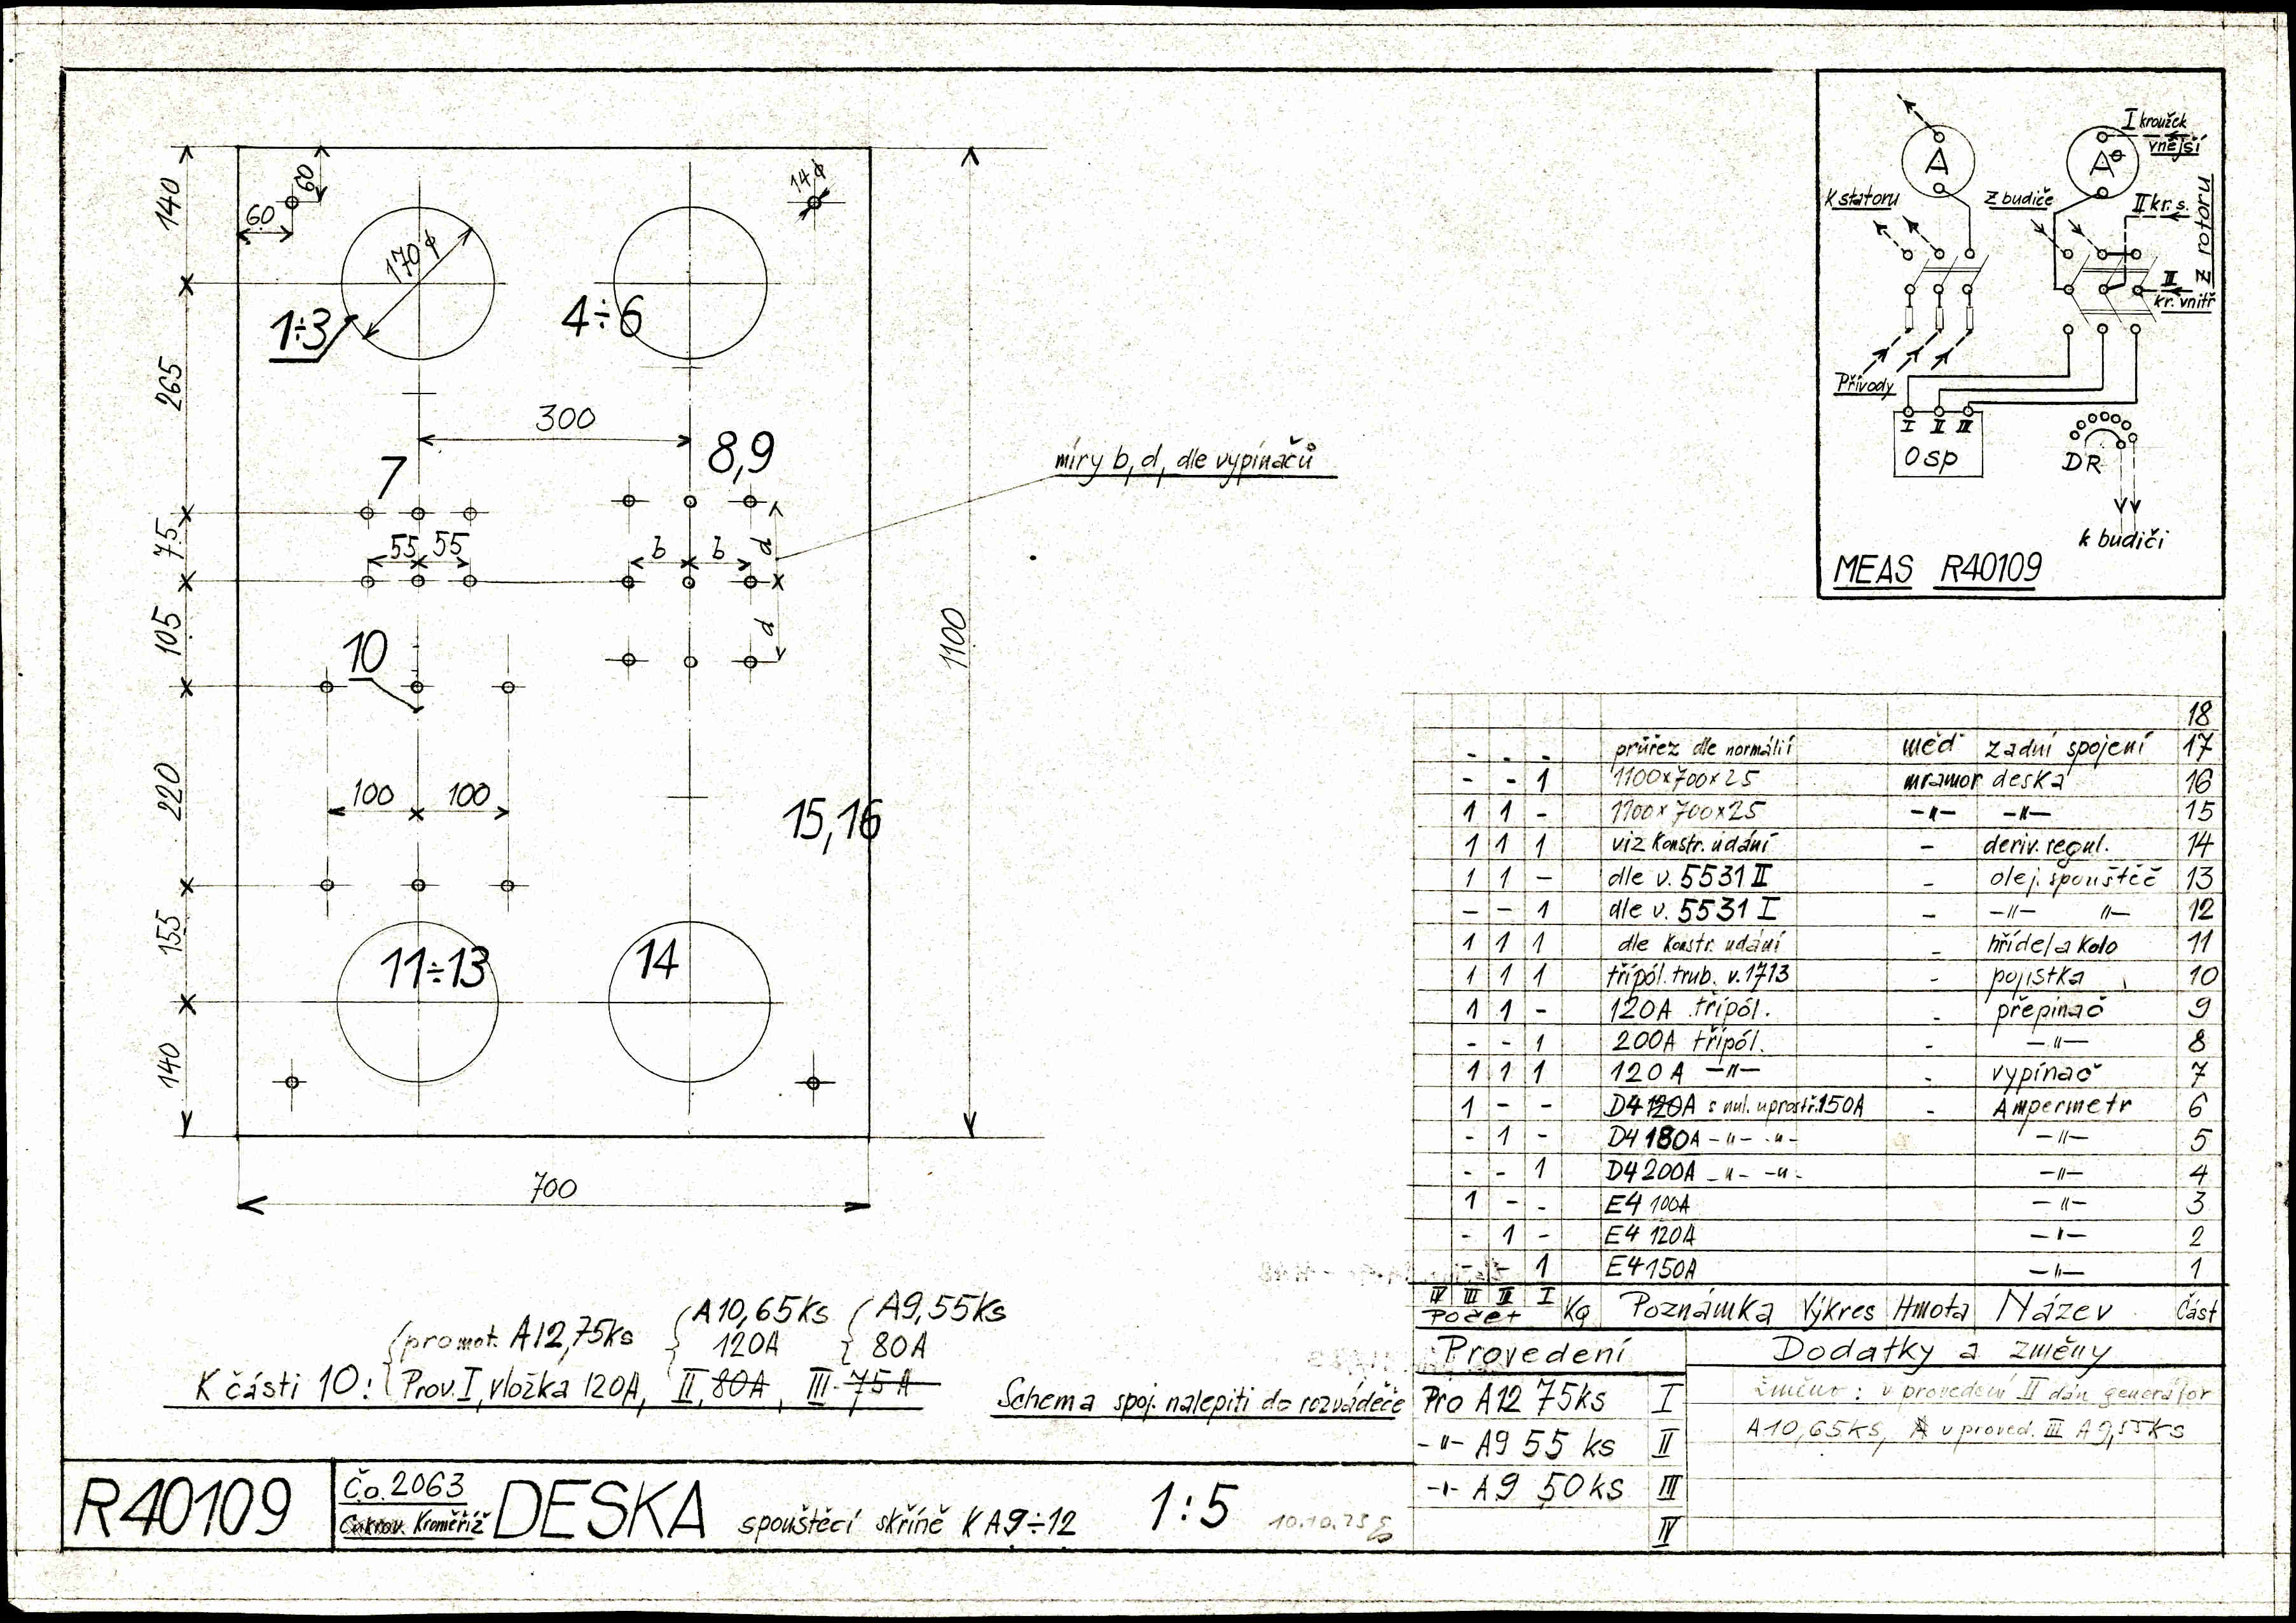 140
60
60
170 ϕ
14 ϕ
1÷3
4÷6
265
300
7
8,9
míry b, d, dle vypínačů
75
55 55
b b
d
105
d
10
1100
220
100 100
15,16
155
11÷13
14
140
700
I kroužek
vnější
A
A
K statoru
Z budiče
II kr. s.
Z rotoru
III
kr. vnitř
Přívody
I II III
OSP
DR
k budiči
MEAS R40109
18
- - - průřez dle normálií měď zadní spojení 17
- - 1 1100×700×25 mramor deska 16
1 1 - 1100×700×25 -"- -"- 15
1 1 1 viz Konstr. udání - deriv. regul. 14
1 1 - dle v. 5531 II - olej. spouštěč 13
- - 1 dle v. 5531 I - -"- "- 12
1 1 1 dle Konstr. udání - hřídel a kolo 11
1 1 1 třípól. trub. v. 1713 - pojistka 10
1 1 - 120A třípól. - přepínač 9
- - 1 200A třípól. - -"- 8
1 1 1 120A -"- - vypínač 7
1 - - D4 120A s nul. uprostř. 150A - Ampermetr 6
- 1 - D4 180A -"- -"- -"- 5
- - 1 D4 200A -"- -"- -"- 4
1 - - E4 100A -"- 3
- 1 - E4 120A -"- 2
- - 1 E4 150A -"- 1
IV III II I
Počet Kg Poznámka Výkres Hmota Název Část
Provedení Dodatky a změny
Pro A12 75ks I
-"- A9 55 ks II
-"- A9 50ks III
IV
Změno: v provedení II dán generátor
A10,65ks, v proved. III A9,55ks
pro mot. A12,75ks A10,65ks A9,55ks
120A 80A
K části 10: Prov. I, vložka 120A, II, 80A, III - 75A
Schema spoj. nalepiti do rozváděče
R40109
Č.o. 2063
Cukrov. Kroměříž
DESKA spouštěcí skříně K A9÷12 1:5 10.10.23